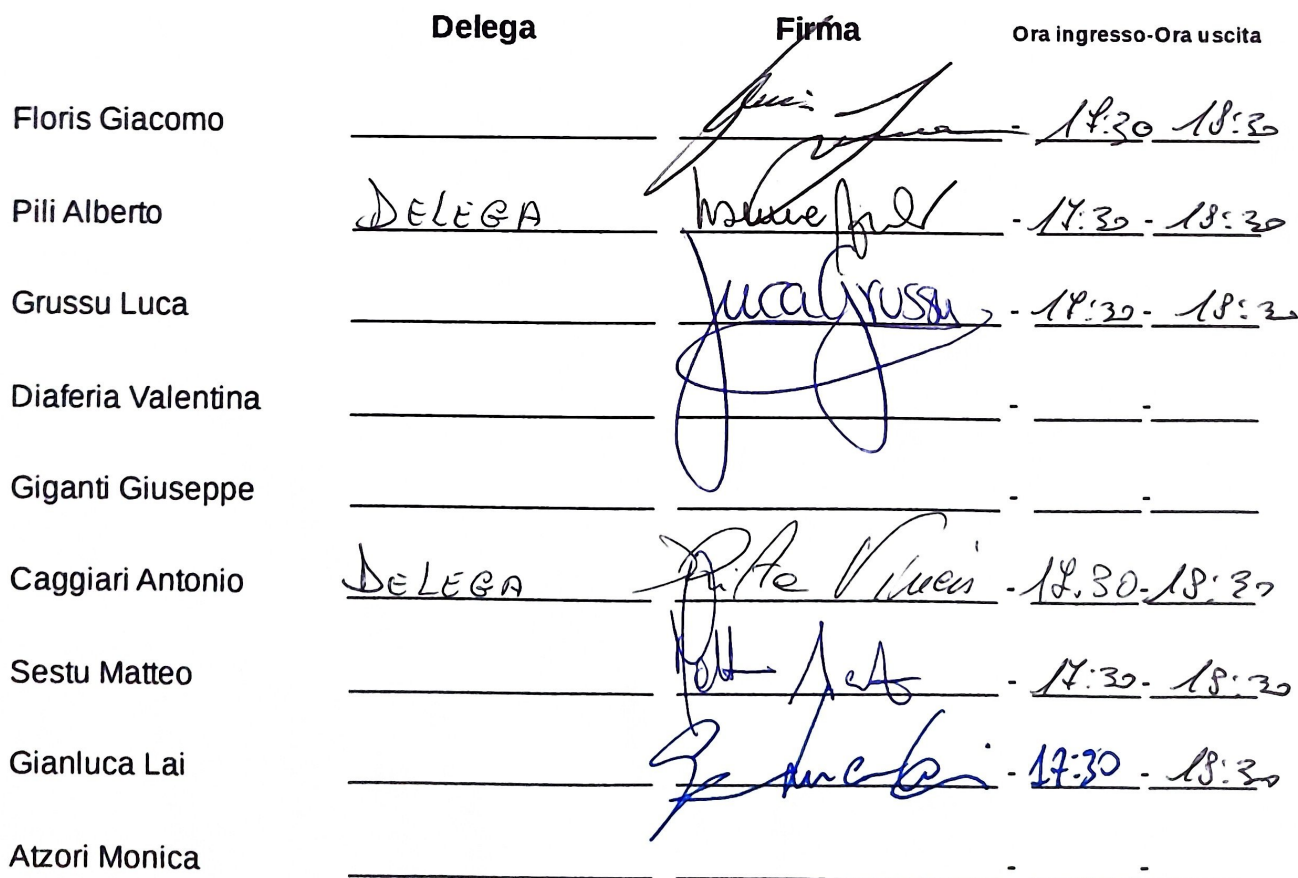 Delega Firma Ora ingresso-Ora uscita
Floris Giacomo - 17:30 18:30
Pili Alberto DELEGA - 17:30 - 18:30
Grussu Luca Luca Grussu - 17:30 - 18:30
Diaferia Valentina - -
Giganti Giuseppe - -
Caggiari Antonio DELEGA - 17.30 - 18:30
Sestu Matteo - 17:30 - 18:30
Gianluca Lai - 17:30 - 18:30
Atzori Monica - -